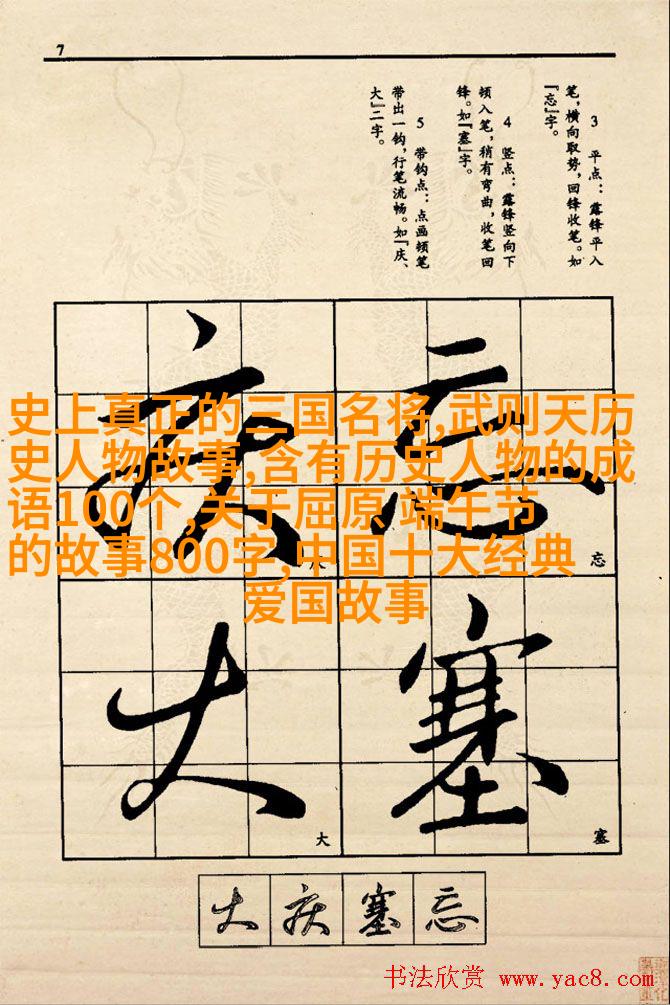 7
3 平点：露锋平入
笔，横向取势，回锋收笔。如
『忘』字。
4 竖点：露锋竖向下
顿入笔，稍有弯曲，收笔回
锋。如『塞』字。
5 带钩点：点画顿笔
带出一钩，行笔流畅。如『庆、
大』二字。
史上真正的三国名将,武则天历
史人物故事,含有历史人物的成
语100个,关于屈原 端午节
的故事800字,中国十大经典
爱国故事
忘
忘
庆
塞
塞
大
大
大庆塞忘
书法欣赏 www.yac8.com